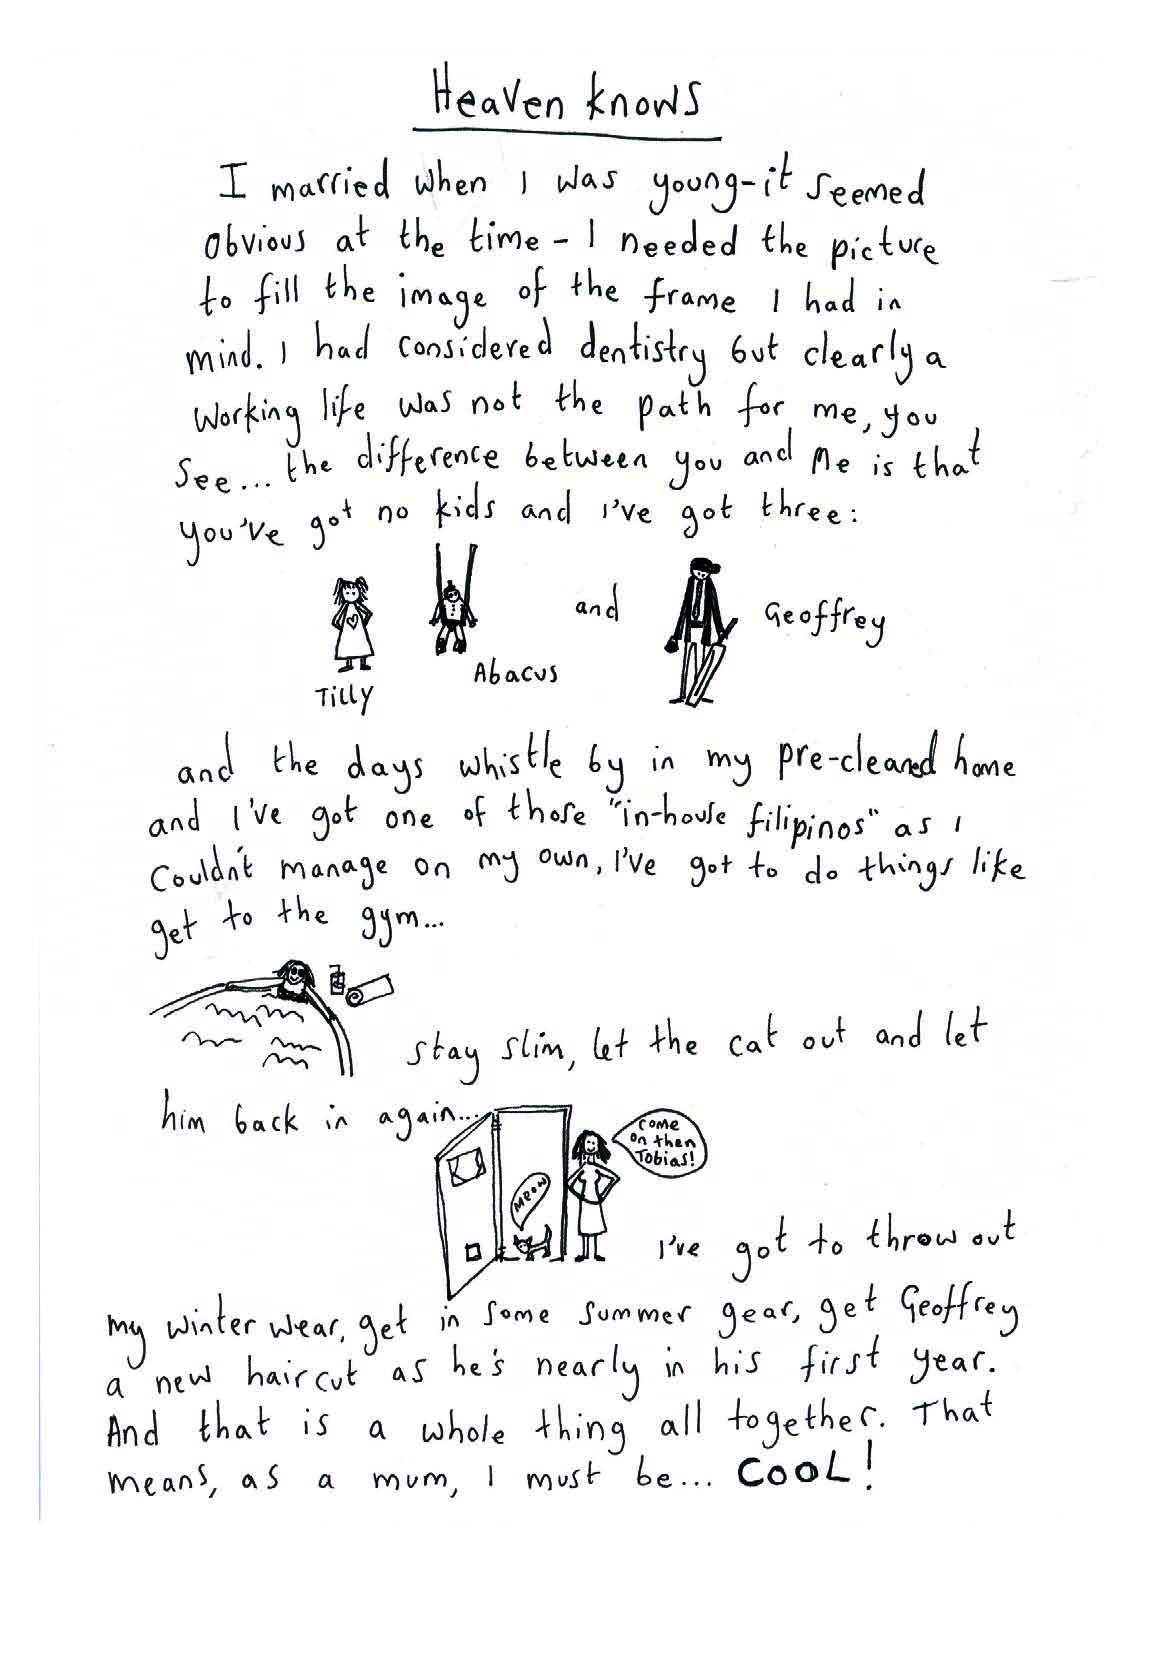 Heaven knows
I married when I was young-it seemed
obvious at the time - I needed the picture
to fill the image of the frame I had in
mind. I had considered dentistry but clearly a
working life was not the path for me, you
see... the difference between you and me is that
you've got no kids and I've got three:
and
Geoffrey
Abacus
Tilly
and the days whistle by in my pre-cleaned home
and I've got one of those "in-house filipinos" as I
couldn't manage on my own, I've got to do things like
get to the gym...
stay slim, let the cat out and let
him back in again...
come
on then
Tobias!
MEOW
I've got to throw out
my winter wear, get in some summer gear, get Geoffrey
a new haircut as he's nearly in his first year.
And that is a whole thing all together. That
means, as a mum, I must be... COOL!